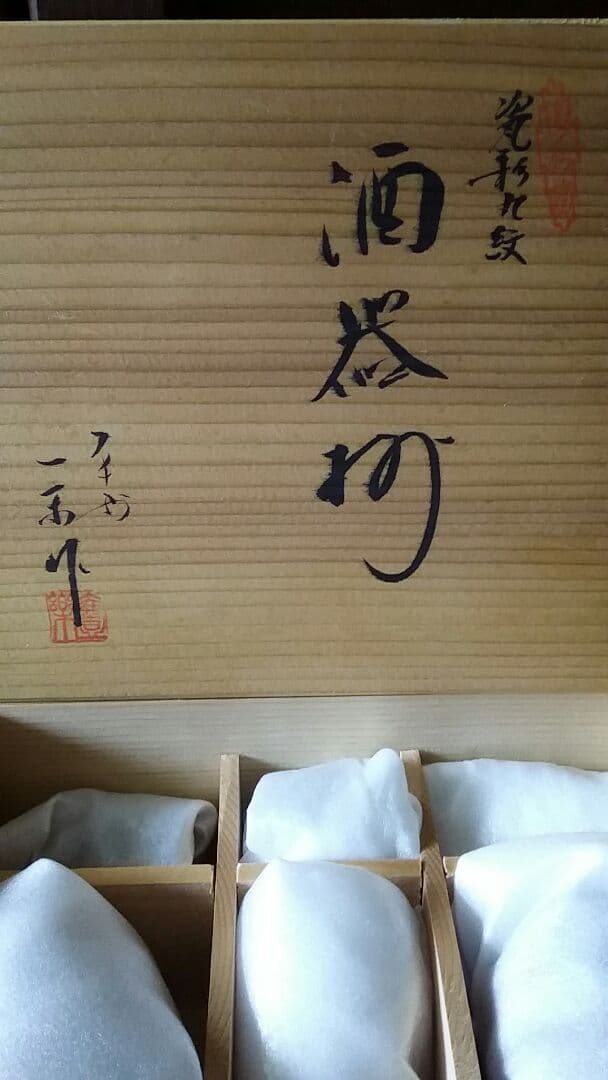 瓷彩花紋
酒器揃
一楽作